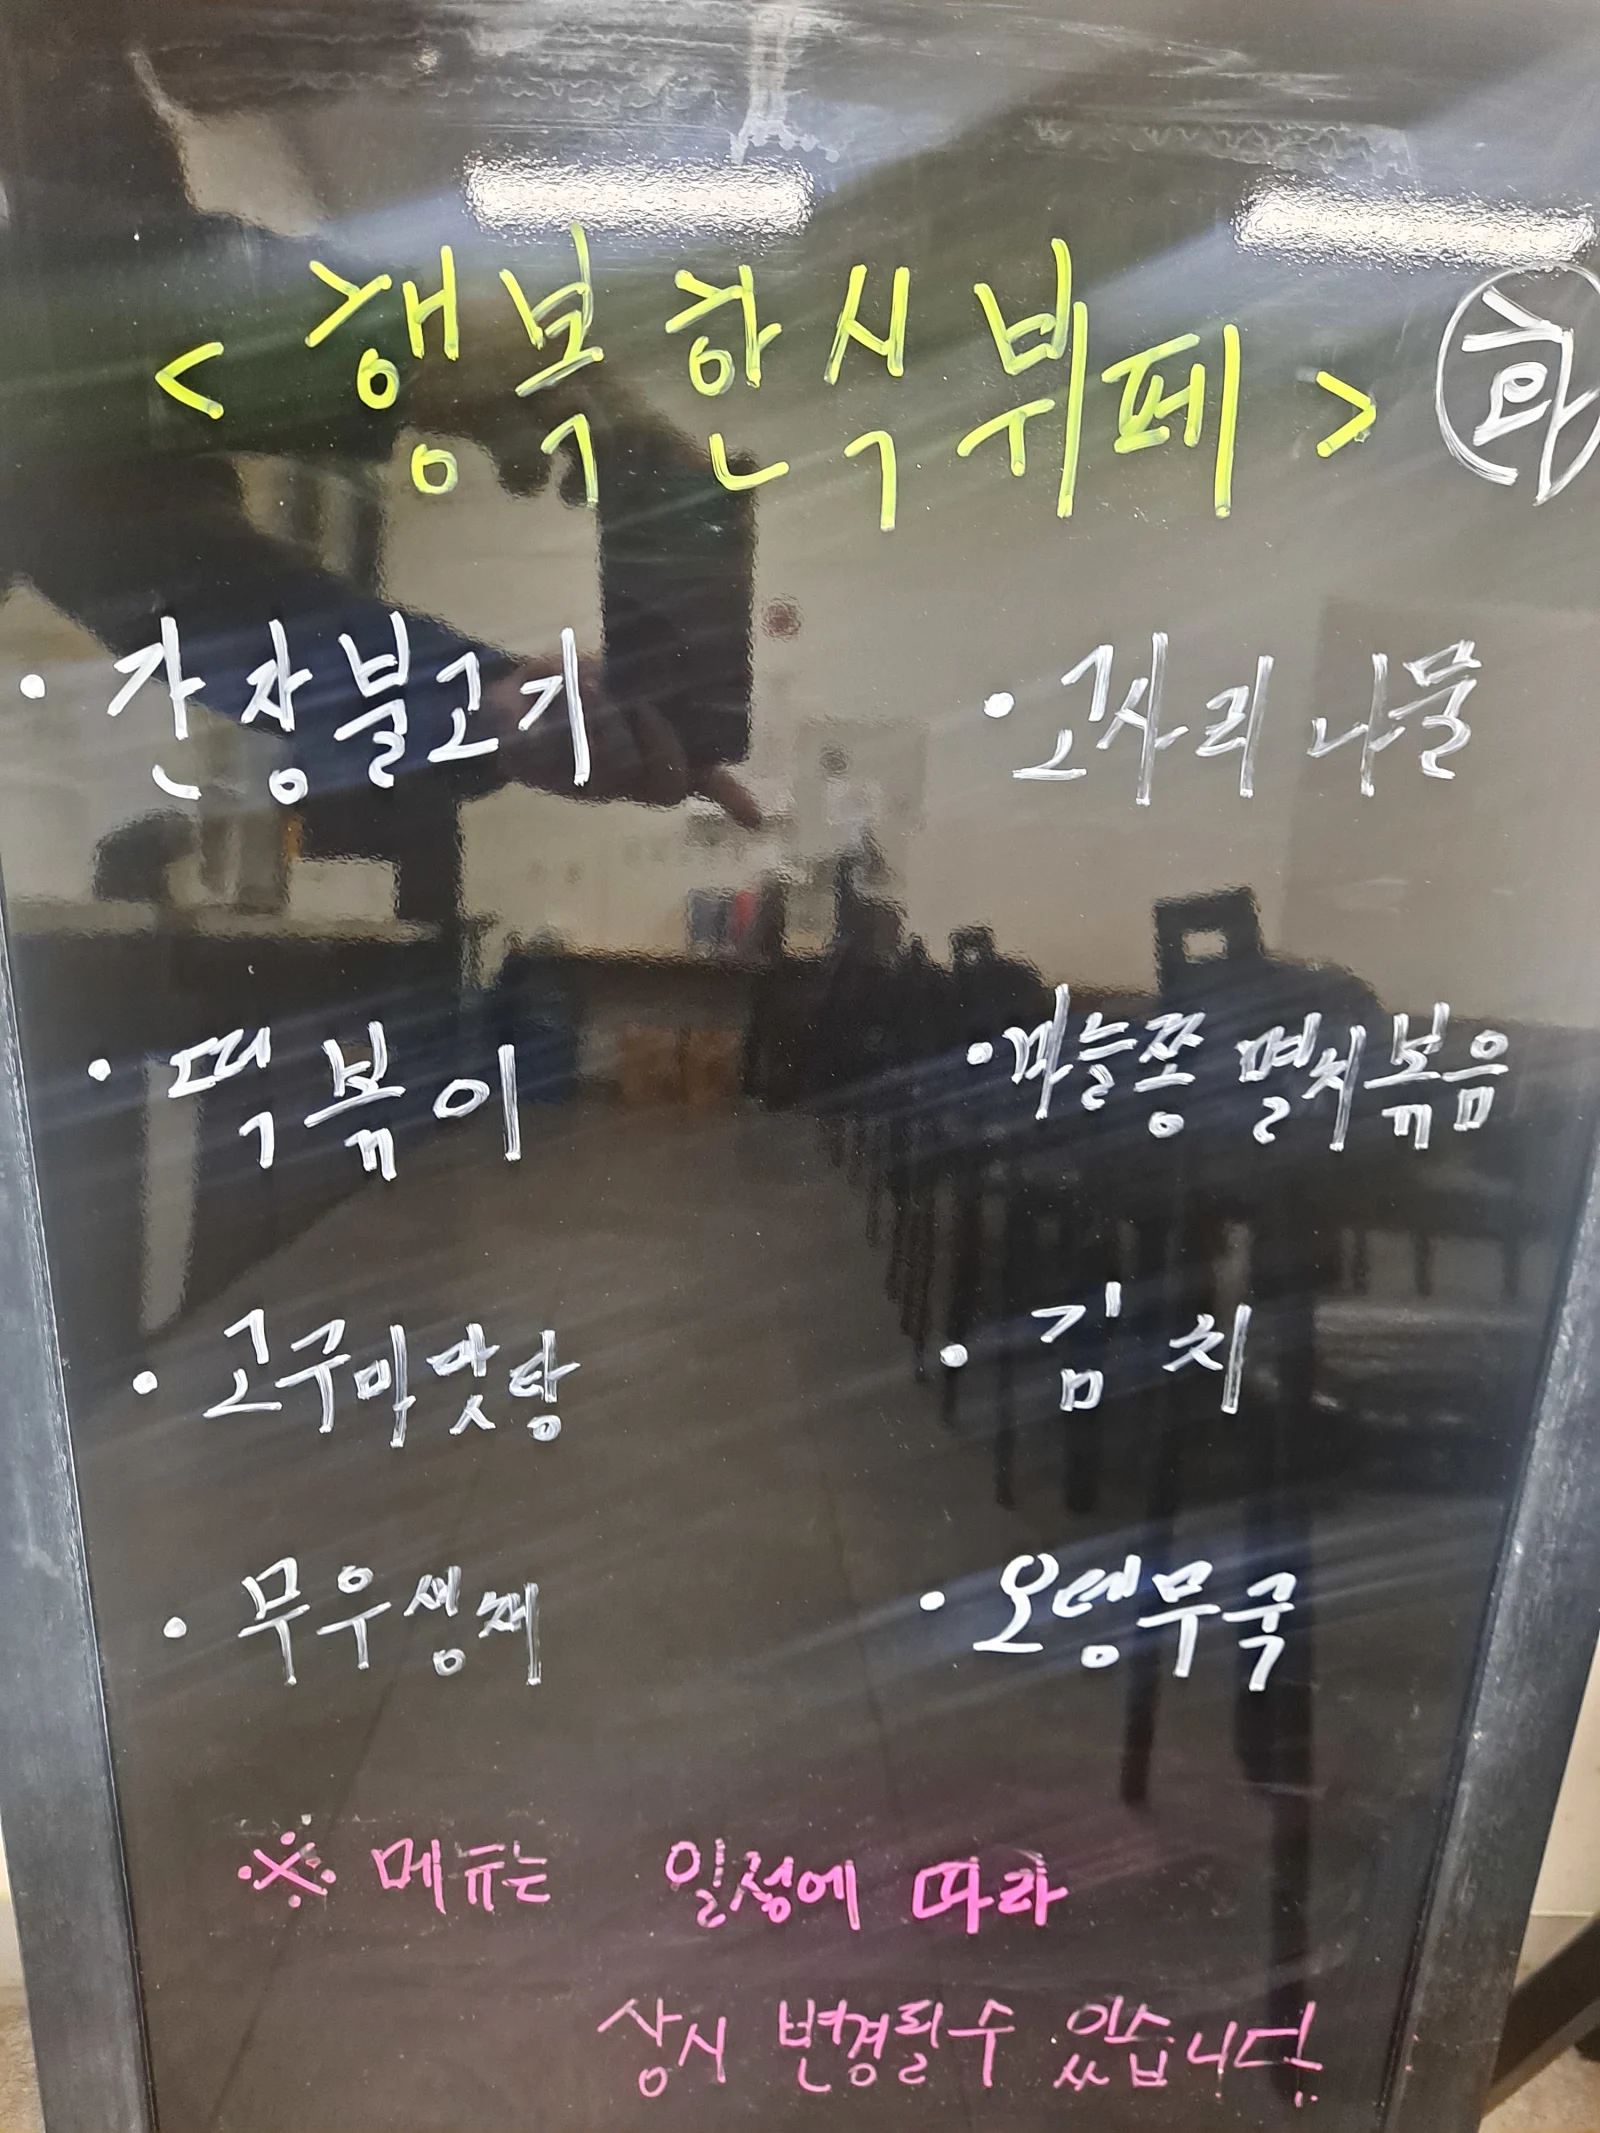 <행복한식뷔페> 화
• 간장불고기
• 고사리 나물
• 떡볶이
• 마늘쫑 멸치볶음
• 고구마맛탕
• 김치
• 무우생채
• 오뎅무국
※ 메뉴는 일정에 따라
상시 변경될수 있습니다.